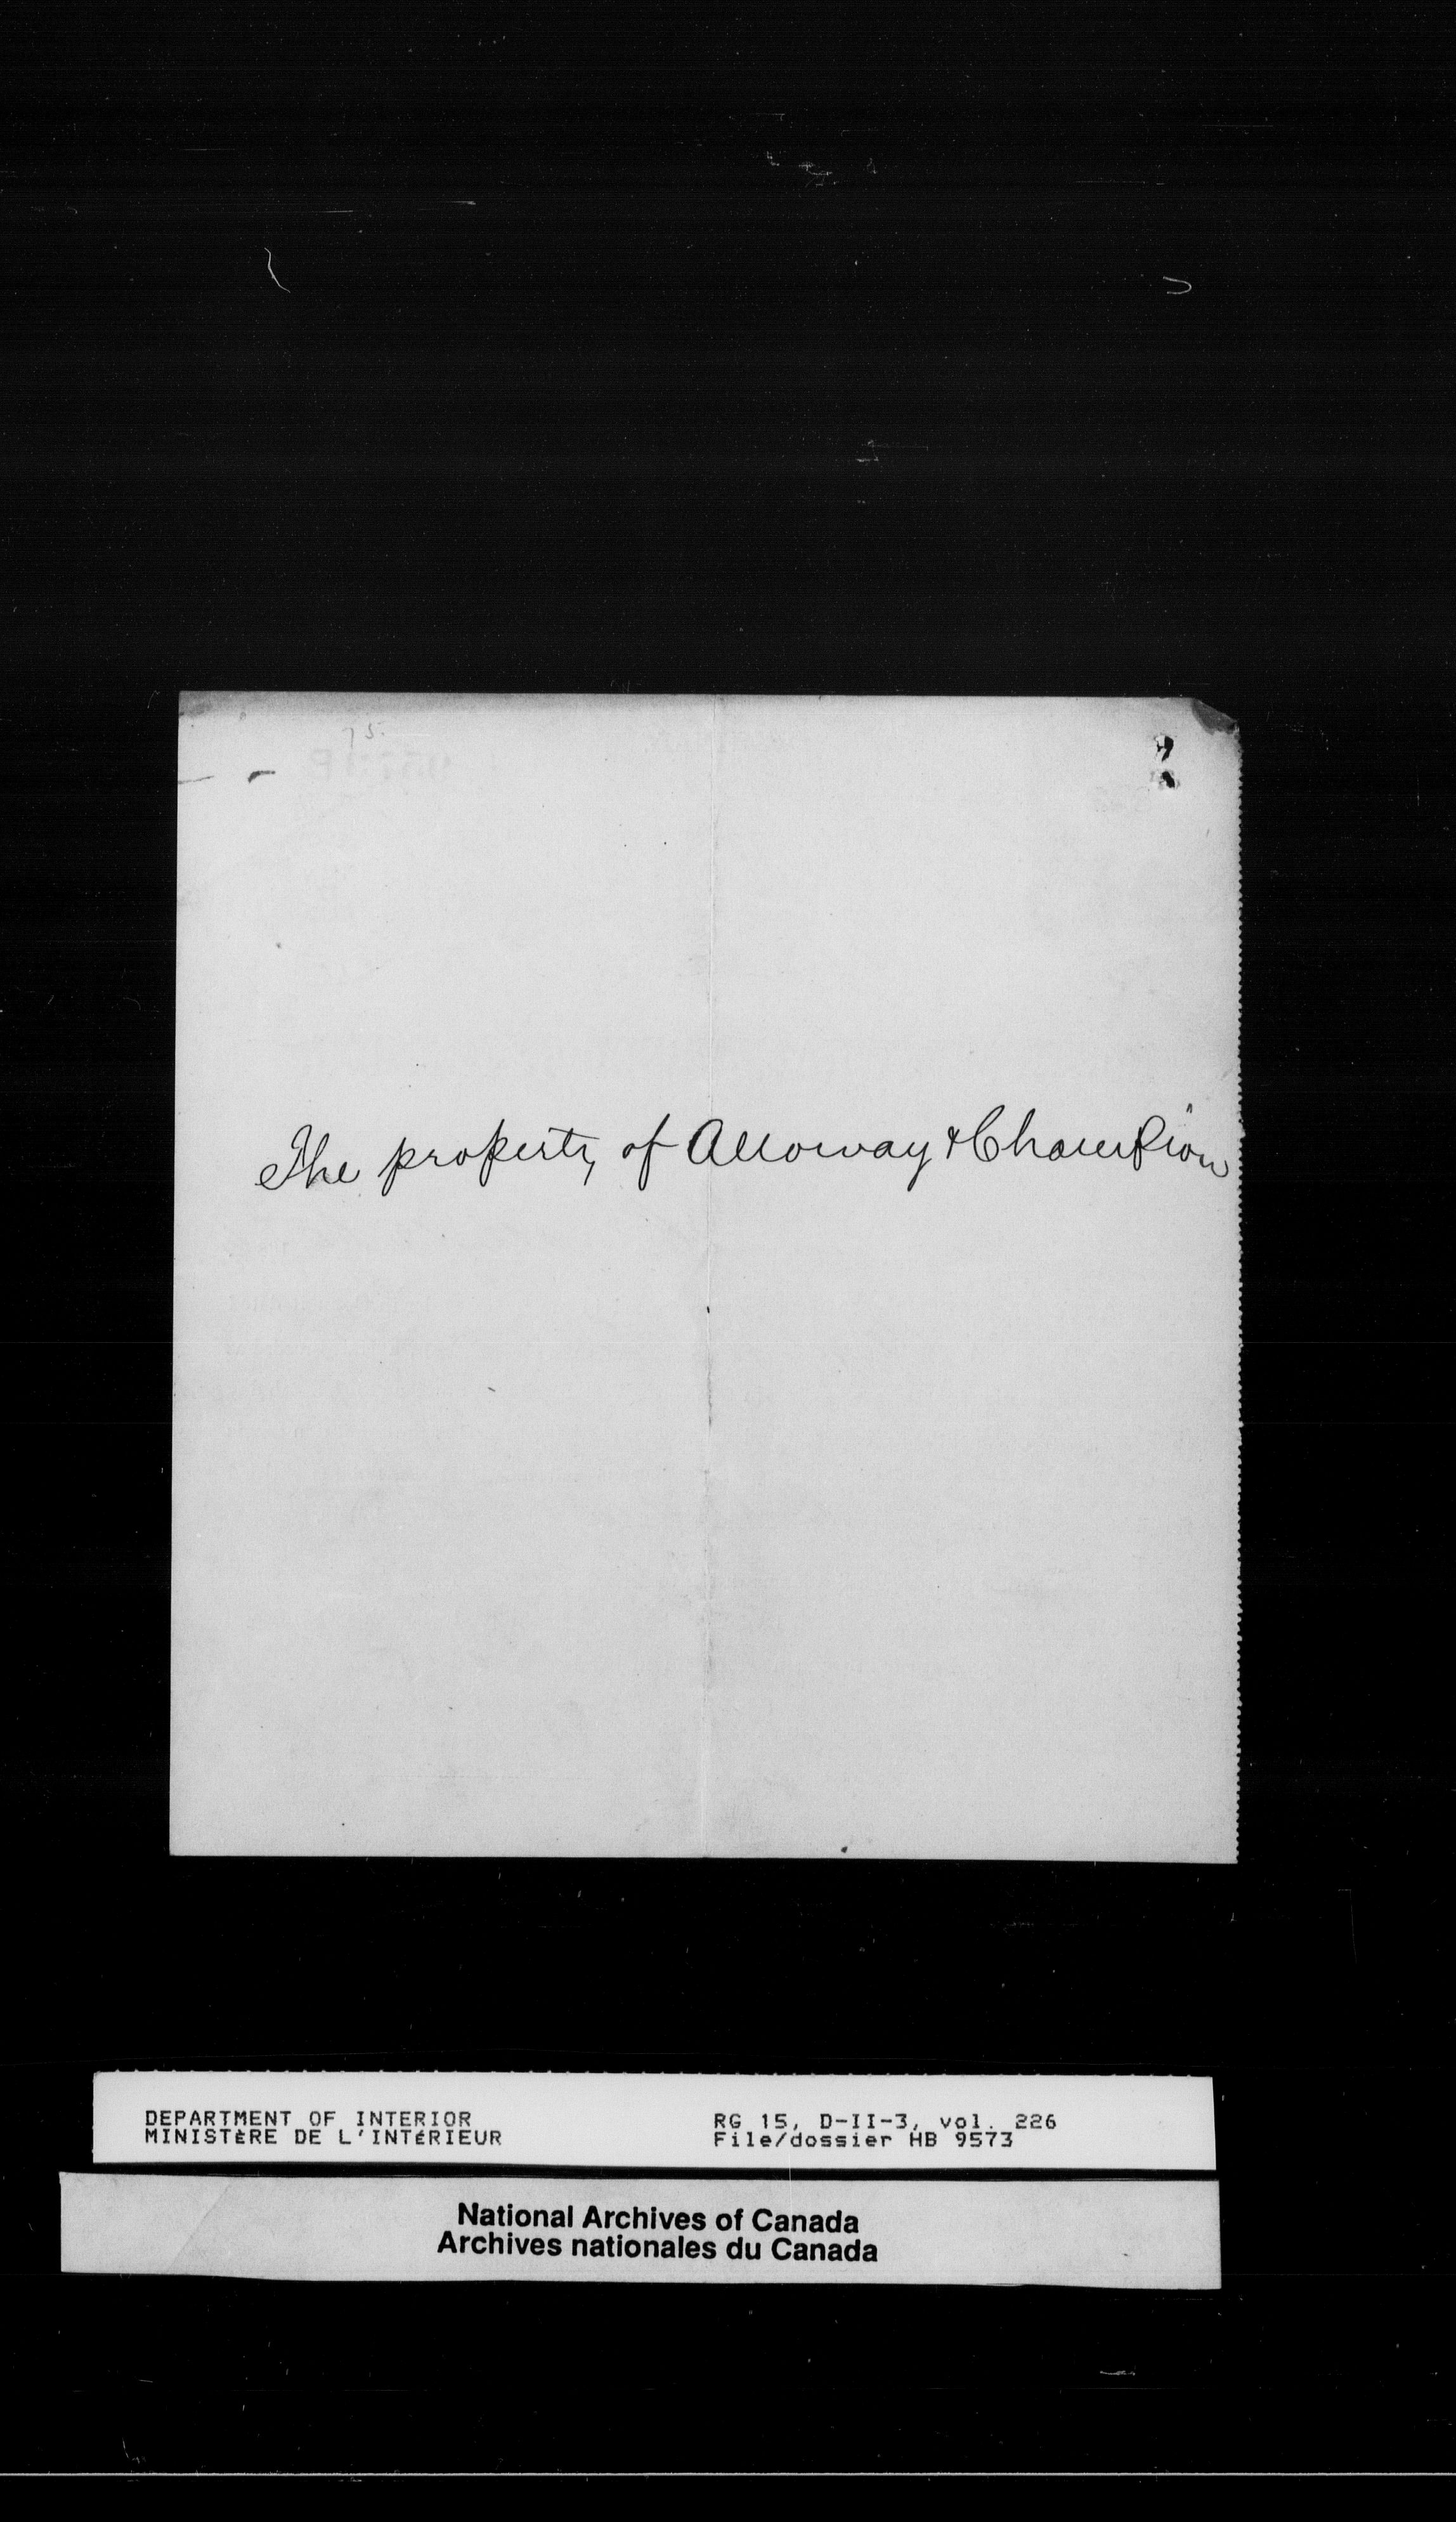 75.
The property of Alloway & Champion
DEPARTMENT OF INTERIOR
MINISTÈRE DE L'INTÉRIEUR
RG 15, D-II-3, vol. 226
File/dossier HB 9573
National Archives of Canada
Archives nationales du Canada